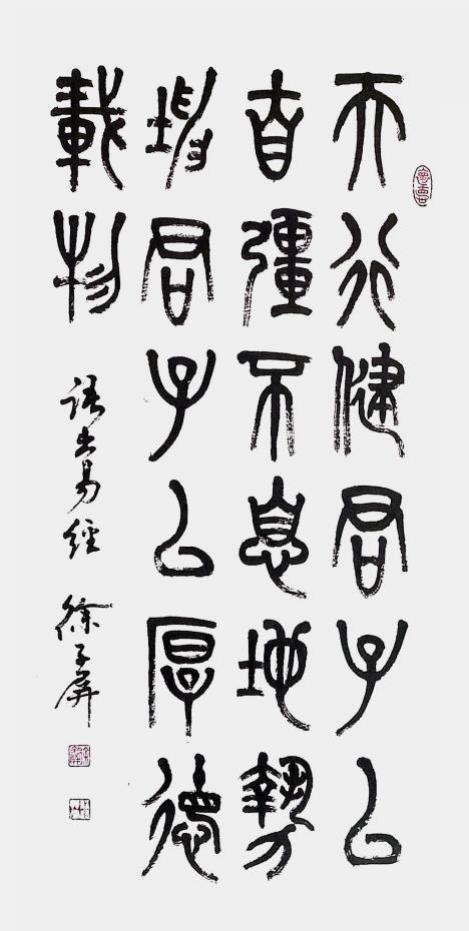 天行健君子以
自彊不息地勢
坤君子以厚德
載物
語出易經 徐子屏